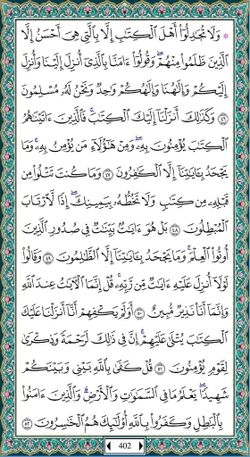 ۞ وَلَا تُجَٰدِلُوٓا۟ أَهْلَ ٱلْكِتَٰبِ إِلَّا بِٱلَّتِى هِىَ أَحْسَنُ إِلَّا
ٱلَّذِينَ ظَلَمُوا۟ مِنْهُمْ ۖ وَقُولُوٓا۟ ءَامَنَّا بِٱلَّذِىٓ أُنزِلَ إِلَيْنَا وَأُنزِلَ
إِلَيْكُمْ وَإِلَٰهُنَا وَإِلَٰهُكُمْ وَٰحِدٌ وَنَحْنُ لَهُۥ مُسْلِمُونَ
٤٦ وَكَذَٰلِكَ أَنزَلْنَآ إِلَيْكَ ٱلْكِتَٰبَ ۚ فَٱلَّذِينَ ءَاتَيْنَٰهُمُ
ٱلْكِتَٰبَ يُؤْمِنُونَ بِهِۦ ۖ وَمِنْ هَٰٓؤُلَآءِ مَن يُؤْمِنُ بِهِۦ ۚ وَمَا
يَجْحَدُ بِـَٔايَٰتِنَآ إِلَّا ٱلْكَٰفِرُونَ ٤٧ وَمَا كُنتَ تَتْلُوا۟ مِن
قَبْلِهِۦ مِن كِتَٰبٍ وَلَا تَخُطُّهُۥ بِيَمِينِكَ ۖ إِذًا لَّٱرْتَابَ
ٱلْمُبْطِلُونَ ٤٨ بَلْ هُوَ ءَايَٰتٌۢ بَيِّنَٰتٌ فِى صُدُورِ ٱلَّذِينَ
أُوتُوا۟ ٱلْعِلْمَ ۚ وَمَا يَجْحَدُ بِـَٔايَٰتِنَآ إِلَّا ٱلظَّٰلِمُونَ ٤٩ وَقَالُوا۟
لَوْلَآ أُنزِلَ عَلَيْهِ ءَايَٰتٌ مِّن رَّبِّهِۦ ۖ قُلْ إِنَّمَا ٱلْـَٔايَٰتُ عِندَ ٱللَّهِ
وَإِنَّمَآ أَنَا۠ نَذِيرٌ مُّبِينٌ ٥٠ أَوَلَمْ يَكْفِهِمْ أَنَّآ أَنزَلْنَا عَلَيْكَ
ٱلْكِتَٰبَ يُتْلَىٰ عَلَيْهِمْ ۚ إِنَّ فِى ذَٰلِكَ لَرَحْمَةً وَذِكْرَىٰ
لِقَوْمٍ يُؤْمِنُونَ ٥١ قُلْ كَفَىٰ بِٱللَّهِ بَيْنِى وَبَيْنَكُمْ
شَهِيدًا ۖ يَعْلَمُ مَا فِى ٱلسَّمَٰوَٰتِ وَٱلْأَرْضِ ۗ وَٱلَّذِينَ ءَامَنُوا۟
بِٱلْبَٰطِلِ وَكَفَرُوا۟ بِٱللَّهِ أُو۟لَٰٓئِكَ هُمُ ٱلْخَٰسِرُونَ ٥٢
402